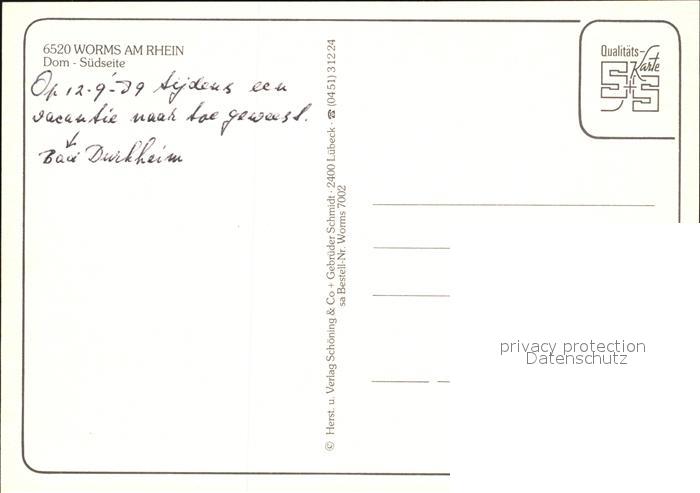 6520 WORMS AM RHEIN
Dom - Südseite
Op 12-9-'89 tijdens een
vacantie naar toe geweest.
Bad Durkheim
© Herst. u. Verlag Schöning & Co + Gebrüder Schmidt · 2400 Lübeck · ☎ (04 51) 3 12 24
sa Bestell-Nr. Worms 7002
Qualitäts-
Karte
S+S
privacy protection
Datenschutz